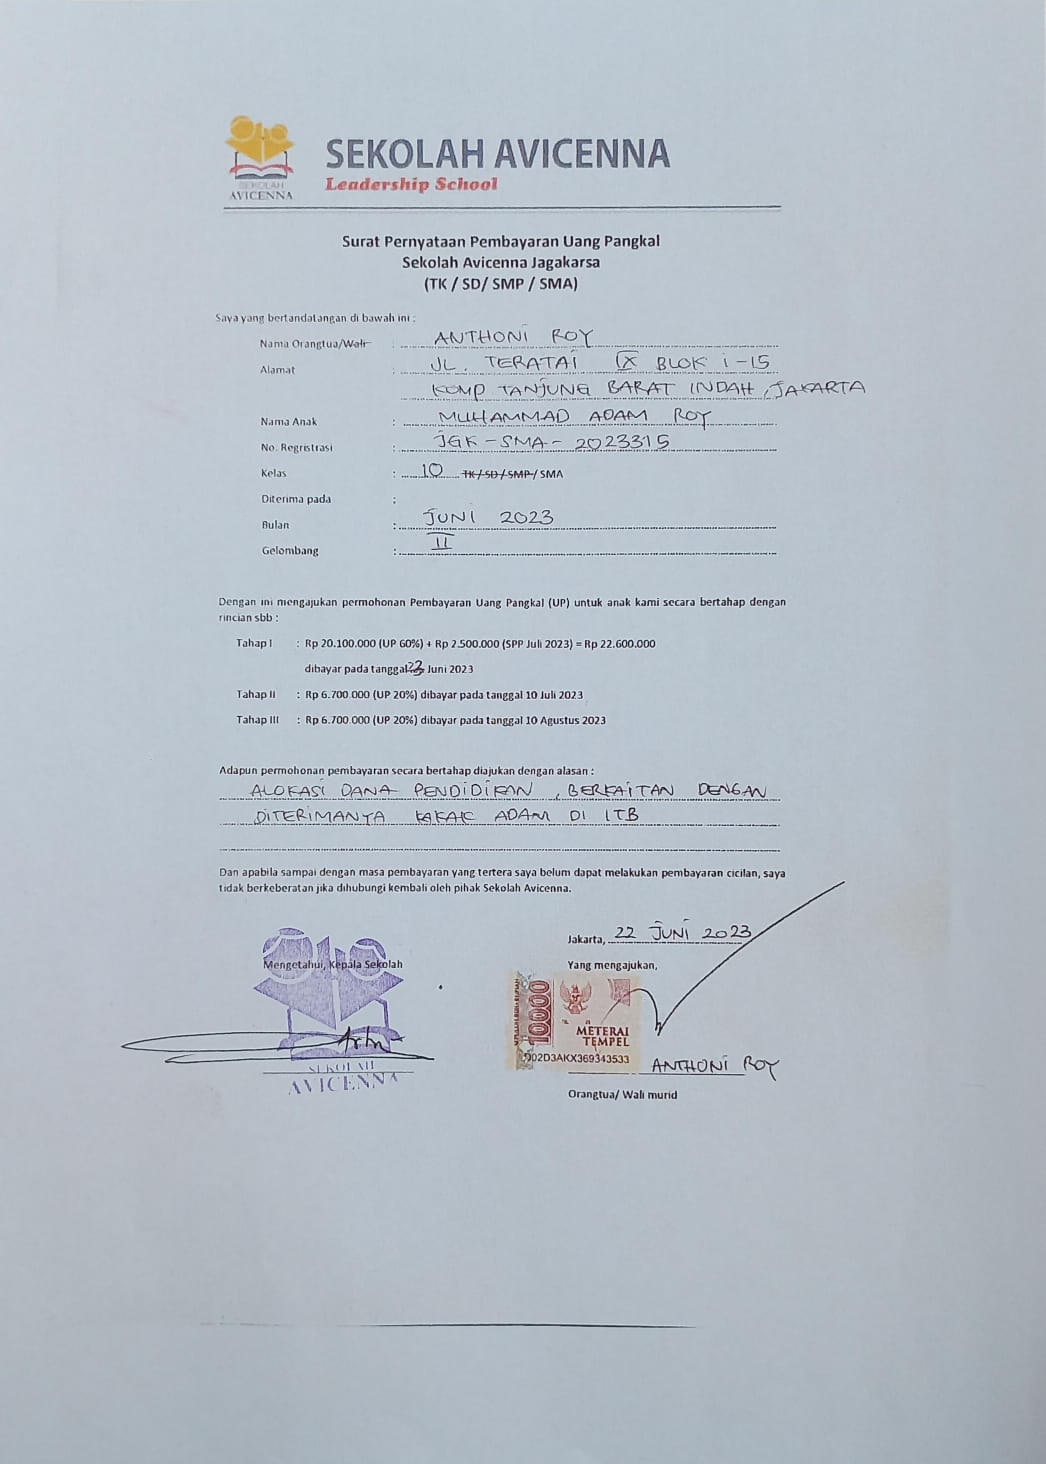 SEKOLAH
AVICENNA
SEKOLAH AVICENNA
Leadership School
Surat Pernyataan Pembayaran Uang Pangkal
Sekolah Avicenna Jagakarsa
(TK / SD/ SMP / SMA)
Saya yang bertandatangan di bawah ini :
Nama Orangtua/Wali : ANTHONI ROY
Alamat : JL. TERATAI IX BLOK i-15
KOMP TANJUNG BARAT INDAH, JAKARTA
Nama Anak : MUHAMMAD ADAM ROY
No. Regristrasi : JGK-SMA-2023315
Kelas : 10 TK/SD/SMP/SMA
Diterima pada :
Bulan : JUNI 2023
Gelombang : II
Dengan ini mengajukan permohonan Pembayaran Uang Pangkal (UP) untuk anak kami secara bertahap dengan
rincian sbb :
Tahap I : Rp 20.100.000 (UP 60%) + Rp 2.500.000 (SPP Juli 2023) = Rp 22.600.000
dibayar pada tanggal 23 Juni 2023
Tahap II : Rp 6.700.000 (UP 20%) dibayar pada tanggal 10 Juli 2023
Tahap III : Rp 6.700.000 (UP 20%) dibayar pada tanggal 10 Agustus 2023
Adapun permohonan pembayaran secara bertahap diajukan dengan alasan :
ALOKASI DANA PENDIDIKAN, BERKAITAN DENGAN
DITERIMANYA KAKAK ADAM DI ITB
Dan apabila sampai dengan masa pembayaran yang tertera saya belum dapat melakukan pembayaran cicilan, saya
tidak berkeberatan jika dihubungi kembali oleh pihak Sekolah Avicenna.
Jakarta, 22 JUNI 2023
Mengetahui, Kepala Sekolah
Yang mengajukan,
10000
METERAI
TEMPEL
902D3AKX369343533
SEKOLAH
AVICENNA
ANTHONI ROY
Orangtua/ Wali murid